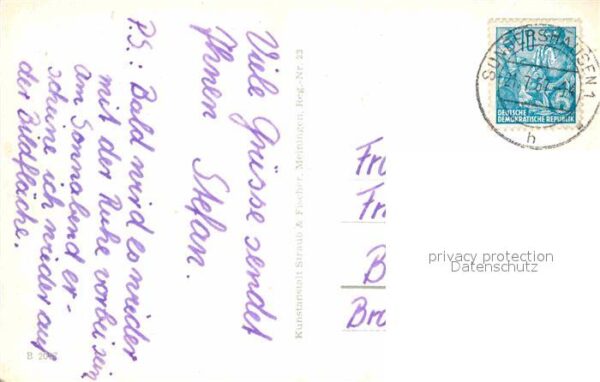 Viele Grüsse sendet
Ihnen Stefan.
P.S.: Bald wird es wieder
mit der Ruhe vorbei sein
am Sonnabend er-
scheine ich wieder auf
der Bildfläche.
Kunstanstalt Straub & Fischer, Meiningen, Reg.-Nr. 23
B 20
10
DEUTSCHE
DEMOKRATISCHE REPUBLIK
SONDERSHAUSEN 1
h
Fr
Fr
B
Bro
privacy protection
Datenschutz